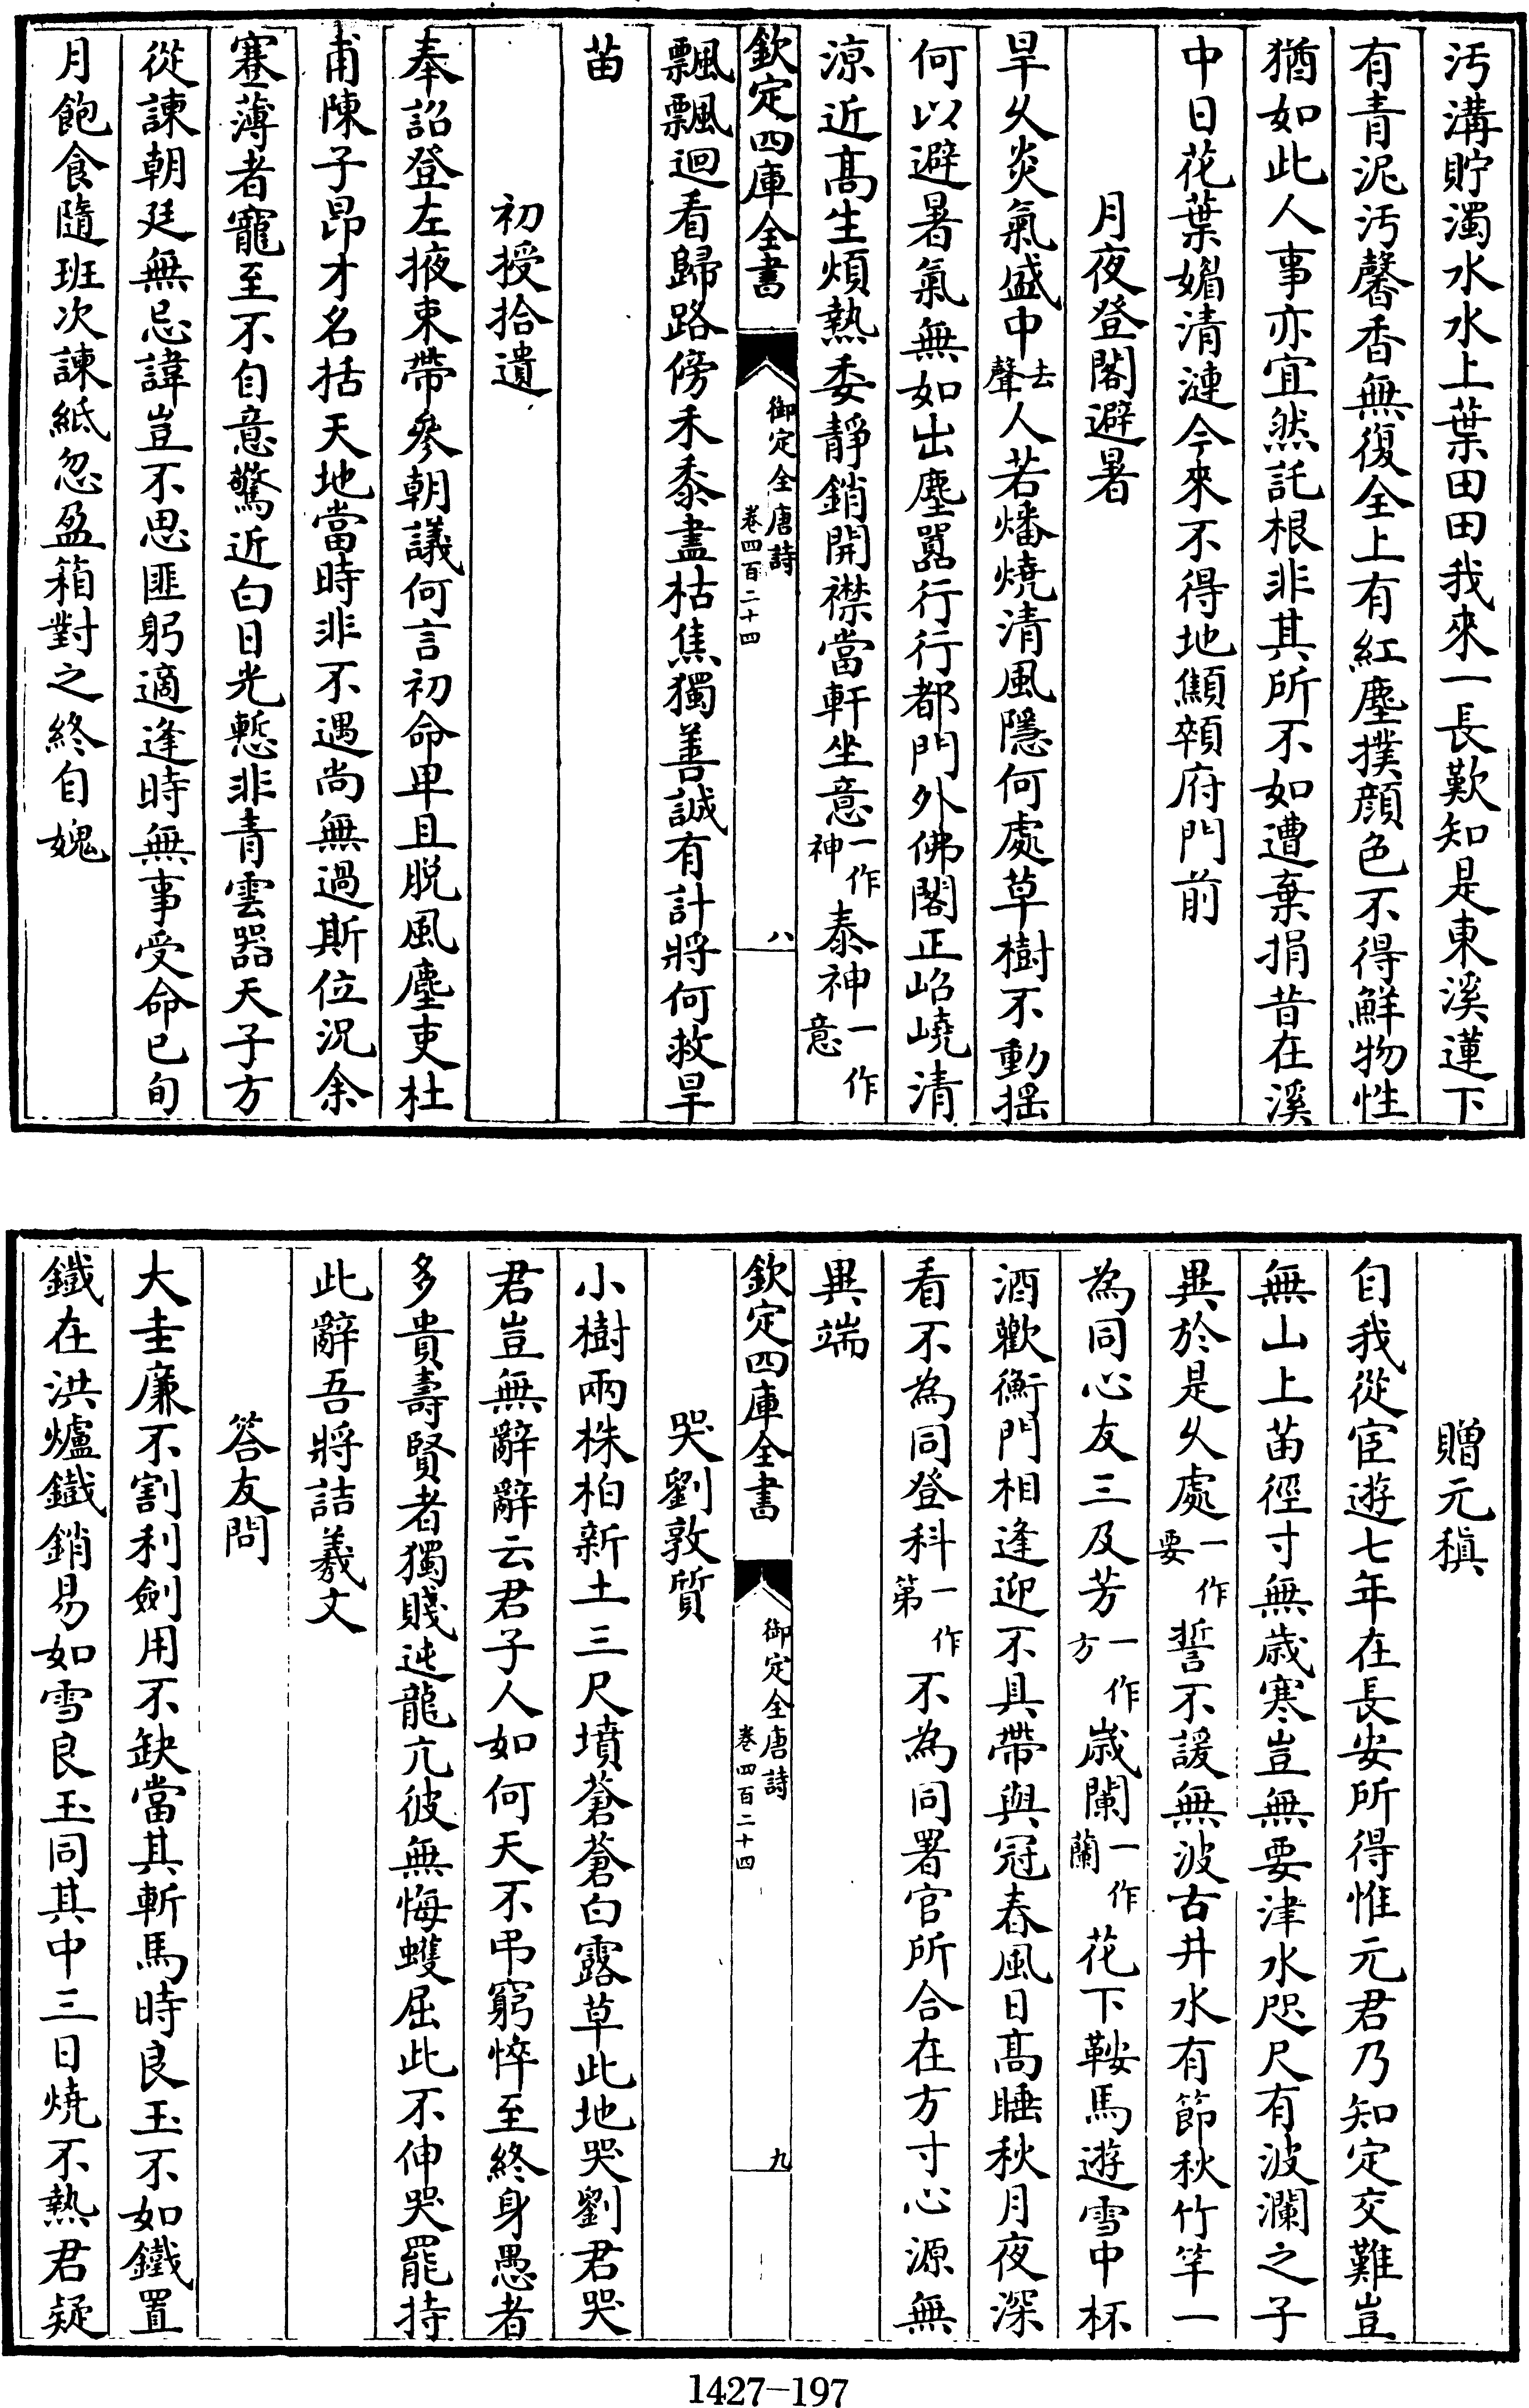 汚溝貯濁水水上葉田田我來一長歎知是東溪蓮下
有青泥汚馨香無復全上有紅塵撲顔色不得鮮物性
猶如此人事亦宜然託根非其所不如遭棄捐昔在溪
中日花葉媚清漣今來不得地顦顇府門前
月夜登閣避暑
旱久炎氣盛中去聲人若燔燒清風隱何處草樹不動揺
何以避暑氣無如出塵囂行行都門外佛閣正岧嶢清
涼近髙生煩熱委靜銷開襟當軒坐意一作神泰神一作意
欽定四庫全書 御定全唐詩 卷四百二十四 八
飄飄迴看歸路傍禾黍盡枯焦獨善誠有計將何救旱
苗
初授拾遺
奉詔登左掖束帶參朝議何言初命卑且脱風塵吏杜
甫陳子昂才名括天地當時非不遇尚無過斯位況余
蹇薄者寵至不自意驚近白日光慙非青雲器天子方
從諫朝廷無忌諱豈不思匪躬適逢時無事受命已旬
月飽食隨班次諫紙忽盈箱對之終自媿
贈元稹
自我從宦遊七年在長安所得惟元君乃知定交難豈
無山上苗徑寸無歲寒豈無要津水咫尺有波瀾之子
異於是久處一作要誓不諼無波古井水有節秋竹竿一
為同心友三及芳一作方歲闌一作蘭花下鞍馬遊雪中杯
酒歡衡門相逢迎不具帶與冠春風日髙睡秋月夜深
看不為同登科一作第不為同署官所合在方寸心源無
異端
欽定四庫全書 御定全唐詩 卷四百二十四 九
哭劉敦質
小樹兩株柏新土三尺墳蒼蒼白露草此地哭劉君哭
君豈無辭辭云君子人如何天不弔窮悴至終身愚者
多貴壽賢者獨賤迍龍亢彼無悔蠖屈此不伸哭罷持
此辭吾將詰羲文
答友問
大圭廉不割利劍用不缺當其斬馬時良玉不如鐵置
鐵在洪爐鐵銷易如雪良玉同其中三日燒不熱君疑
1427-197